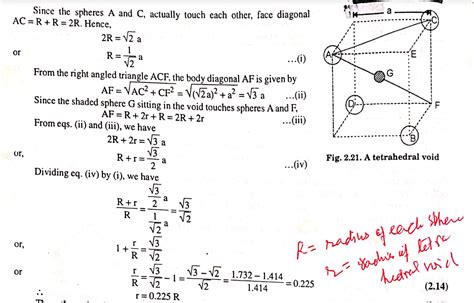 Since the spheres A and C, actually touch each other, face diagonal
AC = R + R = 2R. Hence,
2R = √2 a
or R = 1/√2 a ...(i)
From the right angled triangle ACF, the body diagonal AF is given by
AF = √AC² + CF² = √(√2a)² + a² = √3 a ...(ii)
Since the shaded sphere G sitting in the void touches spheres A and F,
AF = R + 2r + R = 2R + 2r ...(iii)
From eqs. (ii) and (iii), we have
2R + 2r = √3 a
or, R + r = √3/2 a ...(iv)
Dividing eq. (iv) by (i), we have
R + r / R = √3/2 a / 1/√2 a = √3/√2
or, 1 + r/R = √3/√2
or, r/R = √3/√2 − 1 = √3 − √2 / √2 = 1.732 − 1.414 / 1.414 = 0.225
∴ r = 0.225 R (2.14)
a
C
A
E
G
D
F
B
Fig. 2.21. A tetrahedral void
R = radius of each sphere
r = radius of tetra
hedral void